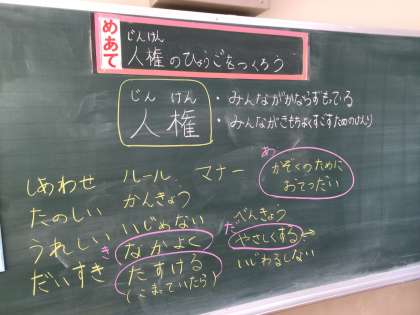 めあて
じんけん
人権のひょうごをつくろう
じん けん
人権
・みんながかならずもっている
・みんながきもちよくすごすためのけんり
しあわせ ルール マナー
あ
かぞくのために
おてつだい
たのしい かんきょう
うれしい いじめない
べんきょう
き なかよく
た やさしくする
だいすき たすける
(こまっていたら)
いじわるしない